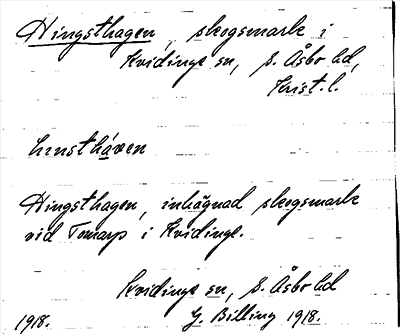 Hingsthagen, skogsmark i
Kvidinge sn, S. Åsbo hd,
Krist. l.
hinstháven
Hingsthagen, inhägnad skogsmark
vid Tomarp i Kvidinge.
Kvidinge sn, S. Åsbo hd
1918. G. Billing 1918.